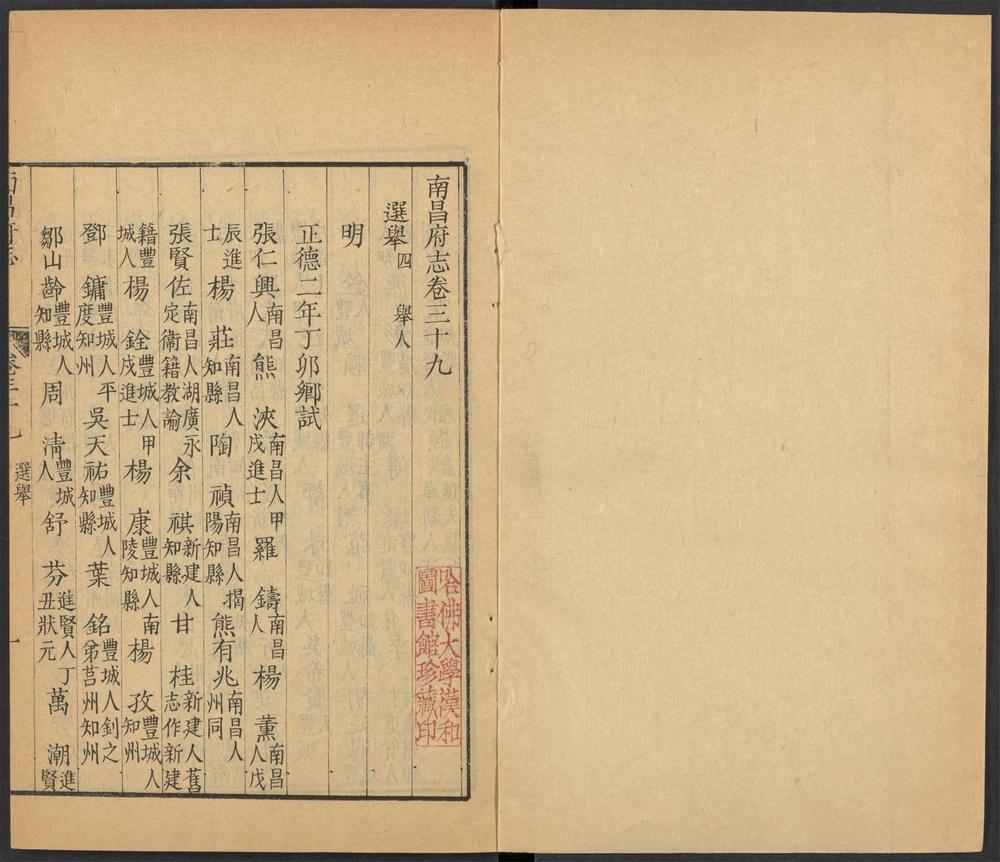 南昌府志卷三十九
選舉四 舉人
明
正德二年丁卯鄉試
張仁興南昌人 熊浹南昌人甲戌進士 羅鑄南昌人 楊薰南昌人戊
辰進士 楊莊南昌人知縣 陶禎南昌人揭陽知縣 熊有兆南昌人州同
張賢佐南昌人湖廣永定衛籍教諭 余祺新建人知縣 甘桂新建人舊志作新建
籍豐城人 楊銓豐城人甲戌進士 楊康豐城人南陵知縣 楊孜豐城人知州
鄧鏞豐城人平度知州 吳天祐豐城人知縣 葉銘豐城人釗之弟莒州知州
鄒山齡豐城人知縣 周淸豐城人 舒芬進賢人丁丑狀元 萬潮進賢
南昌府志 卷三十九 選舉 一
哈佛大學漢和
圖書館珍藏印